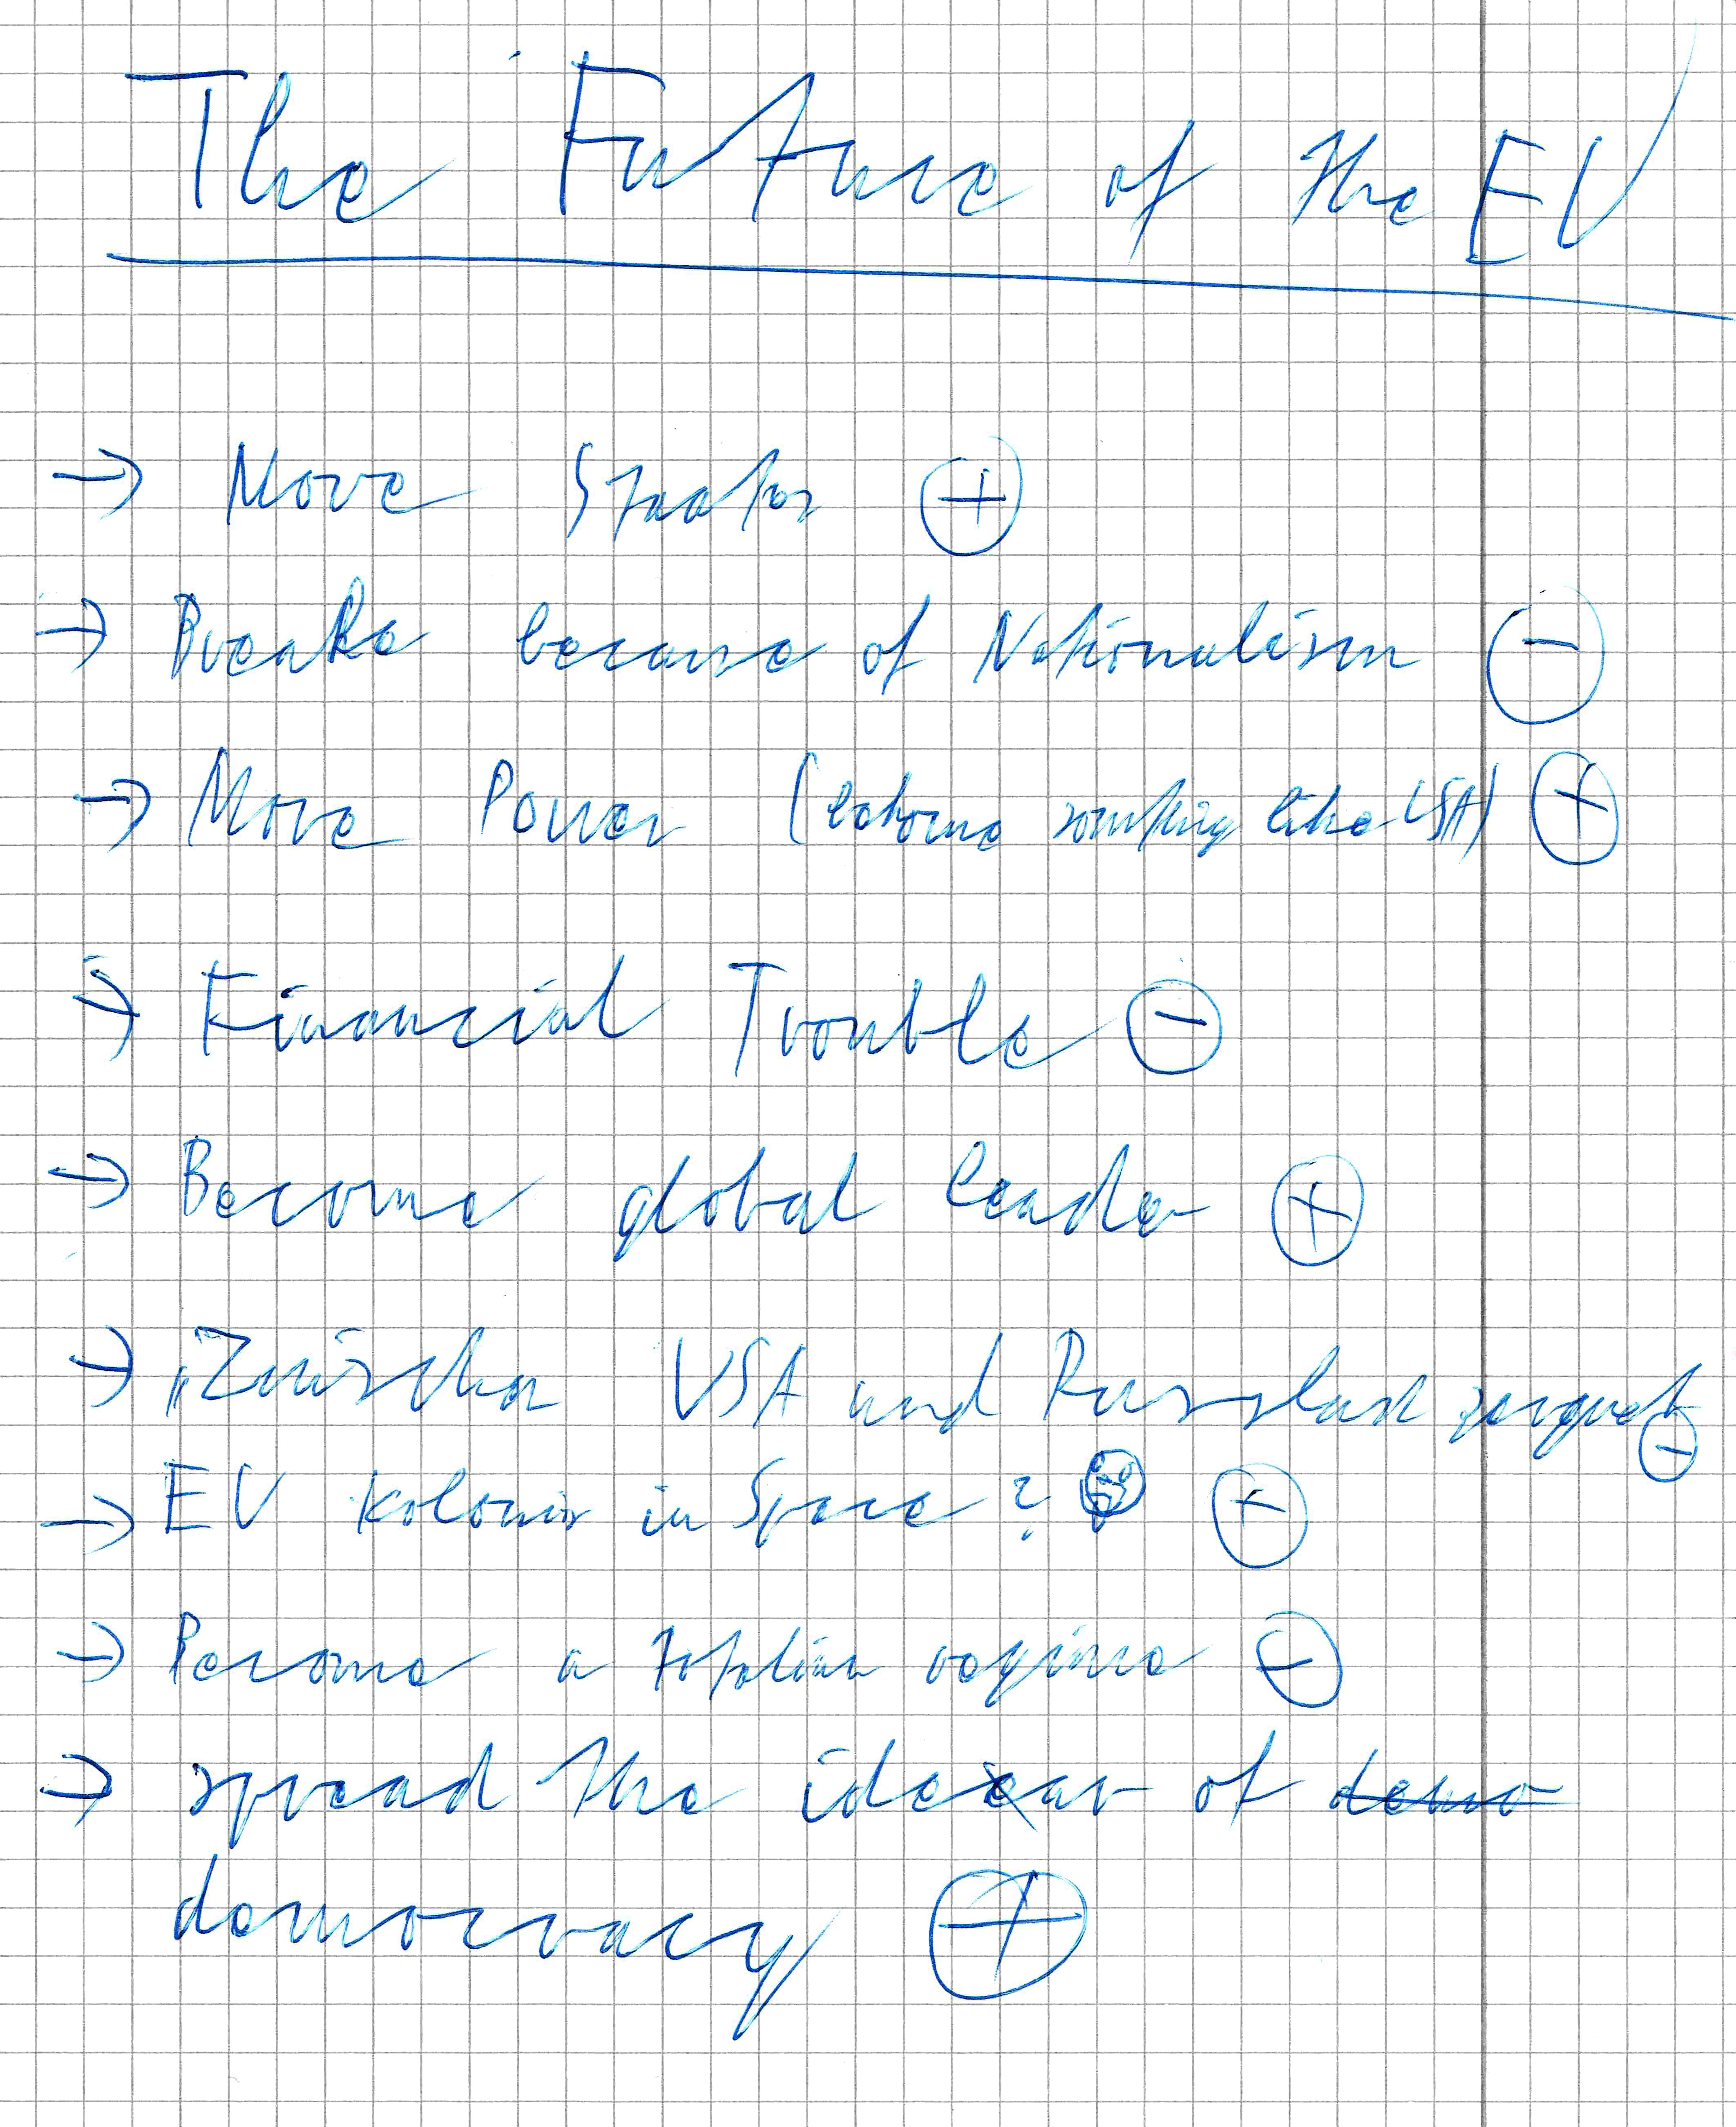 The Future of the EU
→ More Staaten ⊕
→ Breake because of Nationalism ⊖
→ More Power (become something like USA) ⊕
→ Financial Trouble ⊖
→ Become global leader ⊕
→ „Zwischen USA und Russland ⊖
→ EU Kolonies in Space? ⊕
→ Become a regime ⊖
→ spread the idear of demo
democracy ⊕